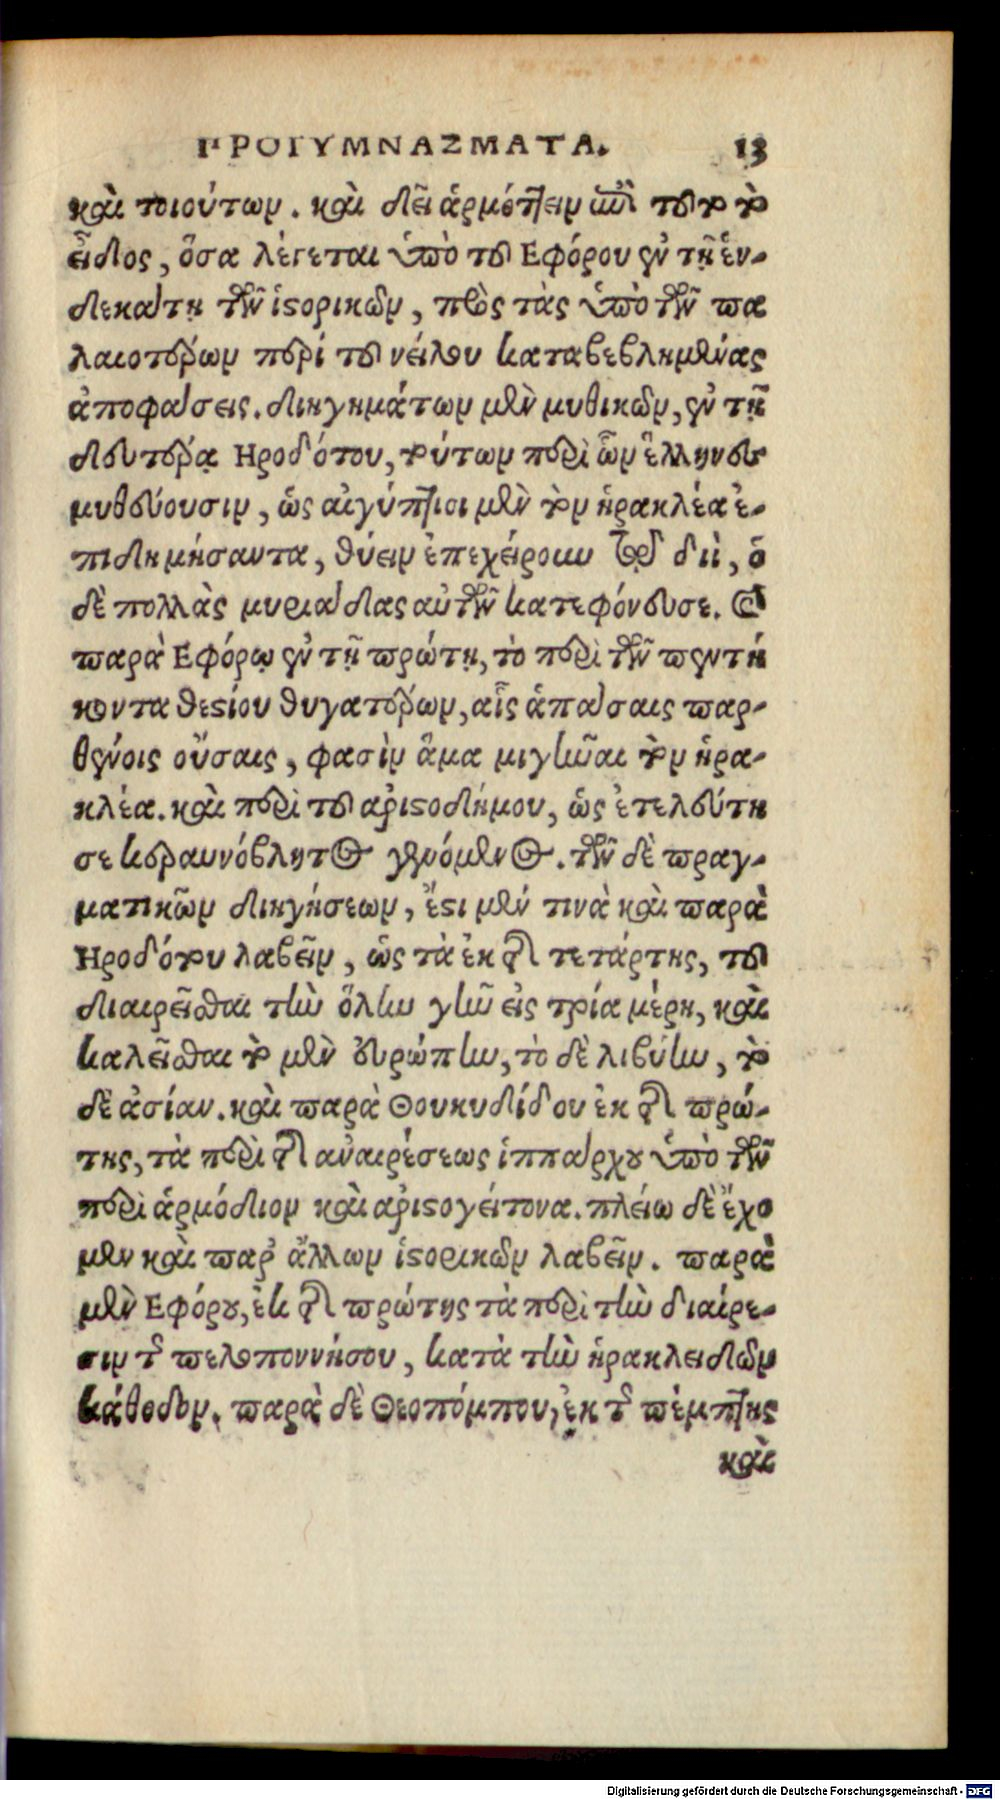 ΠΡΟΓΥΜΝΑΣΜΑΤΑ. 13
καὶ τοιούτων. καὶ δεῖ ἁρμόττειν ἐπὶ τοῦτο τὸ
εἶδος, ὅσα λέγεται ὑπὸ τοῦ Εφόρου ἐν τῇ ἑν-
δεκάτῃ τῶν ἱστορικῶν, πρὸς τὰς ὑπὸ τῶν πα
λαιοτέρων περί τοῦ νείλου καταβεβλημένας
ἀποφάσεις. διηγημάτων μὲν μυθικῶν, ἐν τῇ
δευτέρᾳ Ηροδότου, τούτων περὶ ὧν ἕλληνες
μυθεύουσιν, ὡς αἰγύπτιοι μὲν τὸν ἡρακλέα ἐ-
πιδημήσαντα, θύειν ἐπεχείρουν τῷ διὶ, ὁ
δὲ πολλὰς μυριάδας αὐτῶν κατεφόνευσε. καὶ
παρὰ Εφόρῳ ἐν τῇ πρώτῃ, τὸ περὶ τῶν πεντή
κοντα θεστίου θυγατέρων, αἷς ἁπάσαις παρ-
θένοις οὔσαις, φασὶν ἅμα μιγῆναι τὸν ἡρα-
κλέα. καὶ περὶ τοῦ ἀριστοδήμου, ὡς ἐτελεύτη
σε κεραυνόβλητος γενόμενος. τῶν δὲ πραγ-
ματικῶν διηγήσεων, ἔστι μέν τινὰ καὶ παρὰ
Ηροδότου λαβεῖν, ὡς τὰ ἐκ τῆς τετάρτης, τοῦ
διαιρεῖσθαι τὴν ὅλην γῆν εἰς τρία μέρη, καὶ
καλεῖσθαι τὸ μὲν εὐρώπην, τὸ δὲ λιβύην, τὸ
δὲ ἀσίαν. καὶ παρὰ Θουκυδίδου ἐκ τῆς πρώ-
της, τὰ περὶ τῆς ἀναιρέσεως ἱππάρχου ὑπὸ τῶν
περὶ ἁρμόδιον καὶ ἀριστογείτονα. πλείω δὲ ἔχο
μεν καὶ παρ' ἄλλων ἱστορικῶν λαβεῖν. παρὰ
μὲν Εφόρου, ἐκ τῆς πρώτης τὰ περὶ τὴν διαίρε-
σιν τῆς πελοποννήσου, κατὰ τὴν ἡρακλειδῶν
κάθοδον. παρὰ δὲ Θεοπόμπου, ἐκ τῆς πέμπτης
καὶ
Digitalisierung gefördert durch die Deutsche Forschungsgemeinschaft - DFG